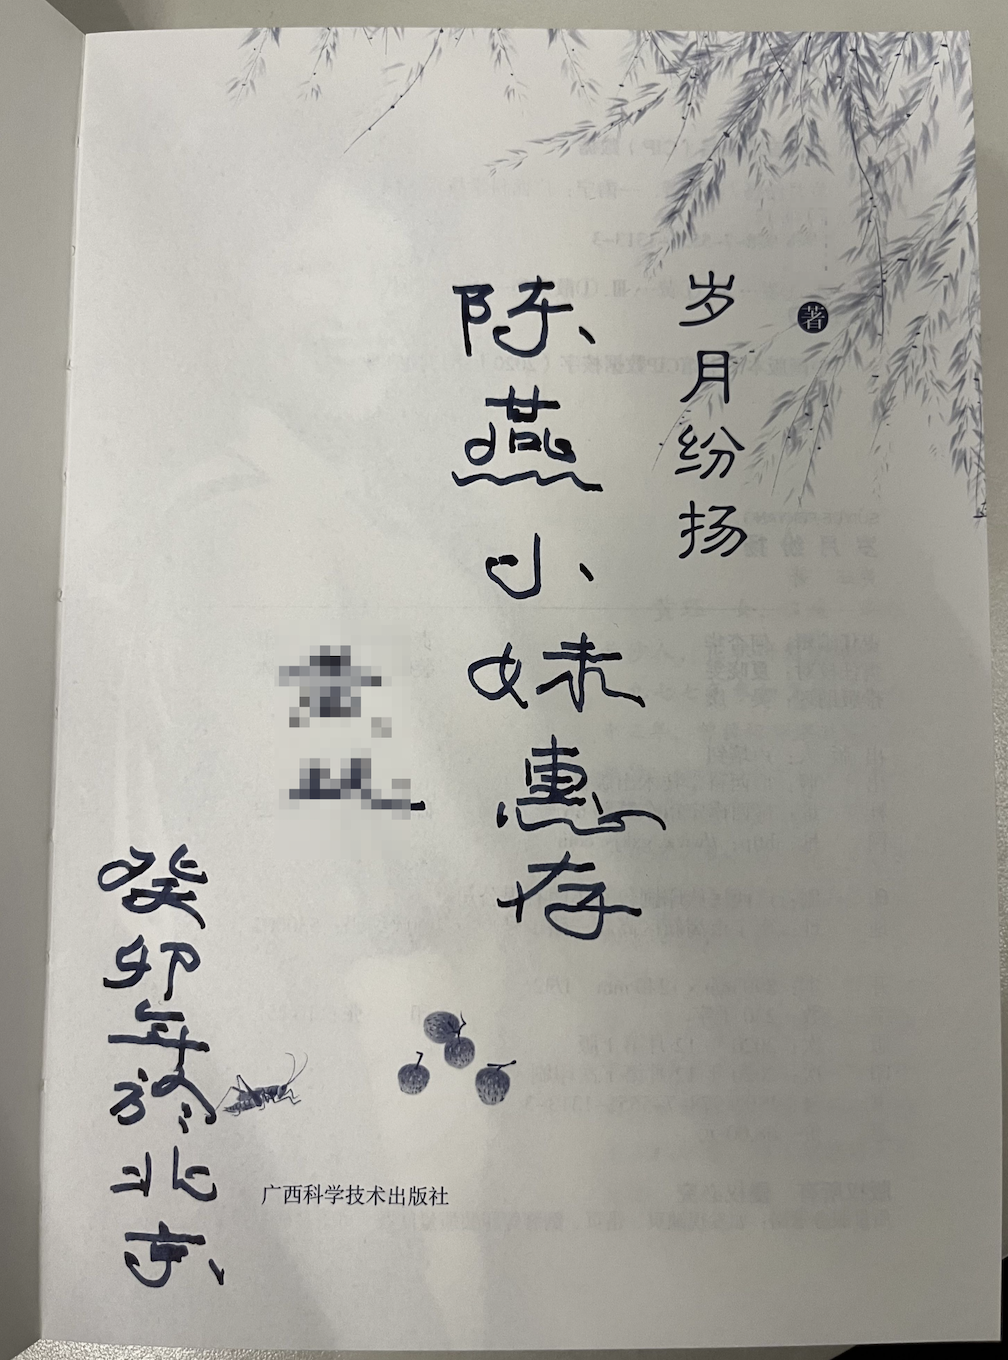 著
岁月纷扬
陈燕小妹惠存
癸卯年於北京
广西科学技术出版社